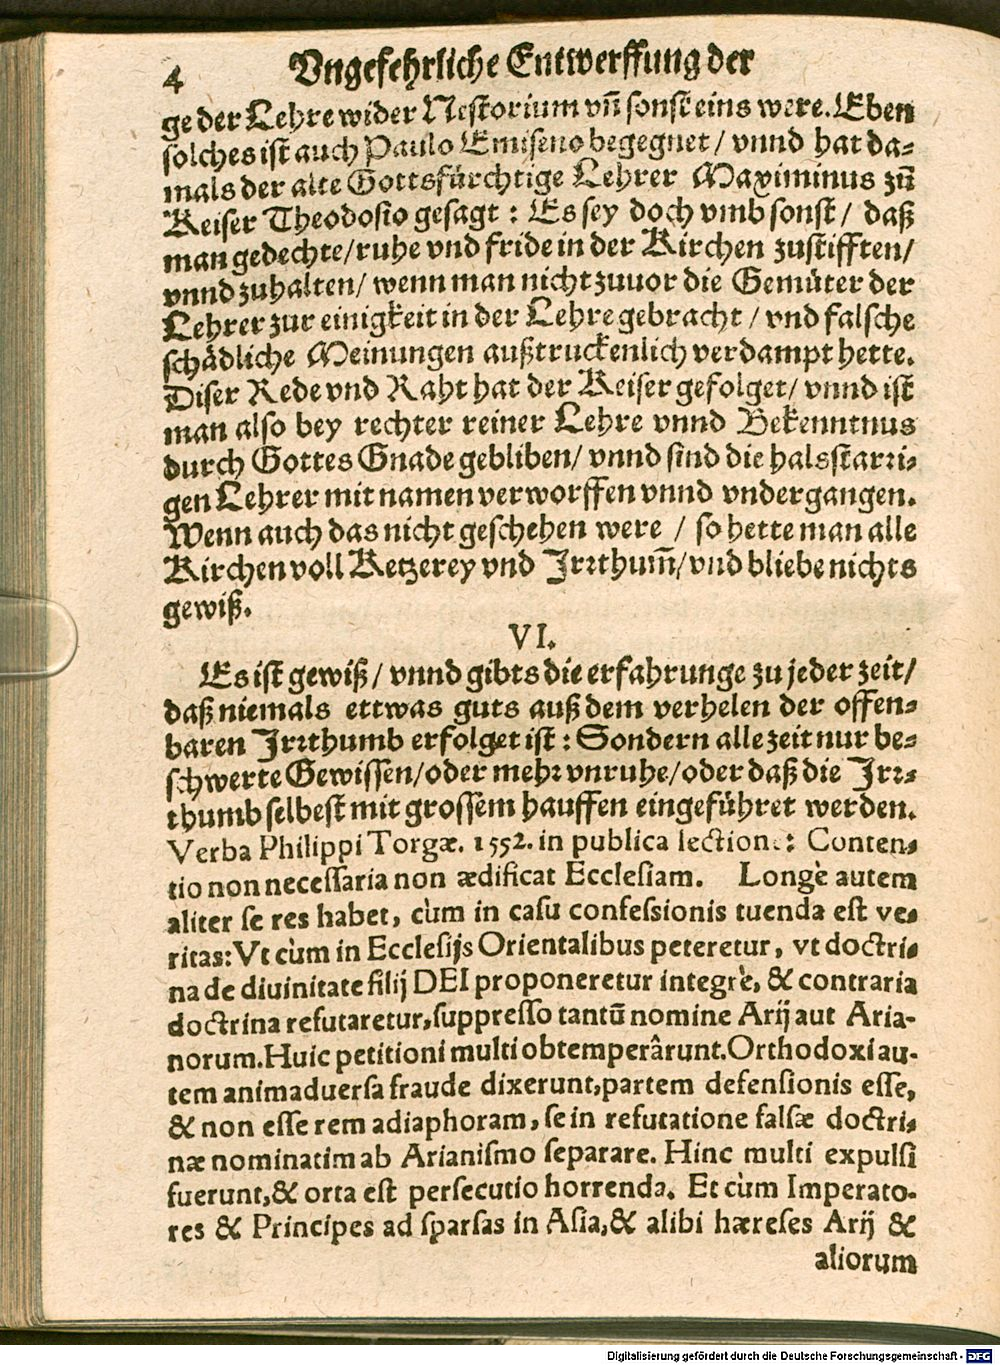 4 Vngefehrliche Entwerffung der
ge der Lehre wider Nestorium vñ sonst eins were. Eben
solches ist auch Paulo Emiseno begegnet / vnnd hat da⸗
mals der alte Gottsfürchtige Lehrer Maximinus zũ
Keiser Theodosio gesagt : Es sey doch vmb sonst / daß
man gedechte / ruhe vnd fride in der Kirchen zustifften /
vnnd zuhalten / wenn man nicht zuuor die Gemüter der
Lehrer zur einigkeit in der Lehre gebracht / vnd falsche
schädliche Meinungen außtruckenlich verdampt hette.
Diser Rede vnd Raht hat der Keiser gefolget / vnnd ist
man also bey rechter reiner Lehre vnnd Bekenntnus
durch Gottes Gnade gebliben / vnnd sind die halsstarri⸗
gen Lehrer mit namen verworffen vnnd vndergangen.
Wenn auch das nicht geschehen were / so hette man alle
Kirchen voll Ketzerey vnd Jrrthum̃ / vnd bliebe nichts
gewiß.
VI.
Es ist gewiß / vnnd gibts die erfahrunge zu jeder zeit /
daß niemals ettwas guts auß dem verhelen der offen⸗
baren Jrrthumb erfolget ist : Sondern alle zeit nur be⸗
schwerte Gewissen / oder mehr vnruhe / oder daß die Jrr⸗
thumb selbest mit grossem hauffen eingeführet werden.
Verba Philippi Torgæ. 1552. in publica lectione: Conten⸗
tio non necessaria non ædificat Ecclesiam. Longè autem
aliter se res habet, cùm in casu confessionis tuenda est ve⸗
ritas: Vt cùm in Ecclesijs Orientalibus peteretur, vt doctri⸗
na de diuinitate filij DEI proponeretur integrè, & contraria
doctrina refutaretur, suppresso tantũ nomine Arij aut Aria-
norum. Huic petitioni multi obtemperârunt. Orthodoxi au-
tem animaduersa fraude dixerunt, partem defensionis esse,
& non esse rem adiaphoram, se in refutatione falsæ doctri⸗
næ nominatim ab Arianismo separare. Hinc multi expulsi
fuerunt, & orta est persecutio horrenda. Et cùm Imperato-
res & Principes ad sparsas in Asia, & alibi hæreses Arij &
aliorum
Digitalisierung gefördert durch die Deutsche Forschungsgemeinschaft - DFG